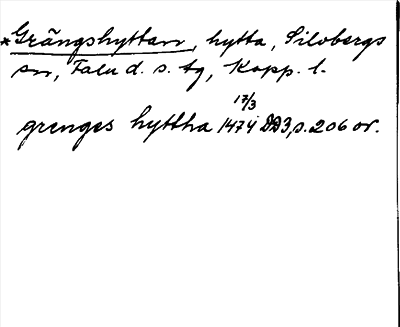 *Grängshyttan, hytta, Silvbergs
sn, Falu d. s. tg, Kopp. l.
grenges hyttha 1474 17/3 DD3, s. 206 or.